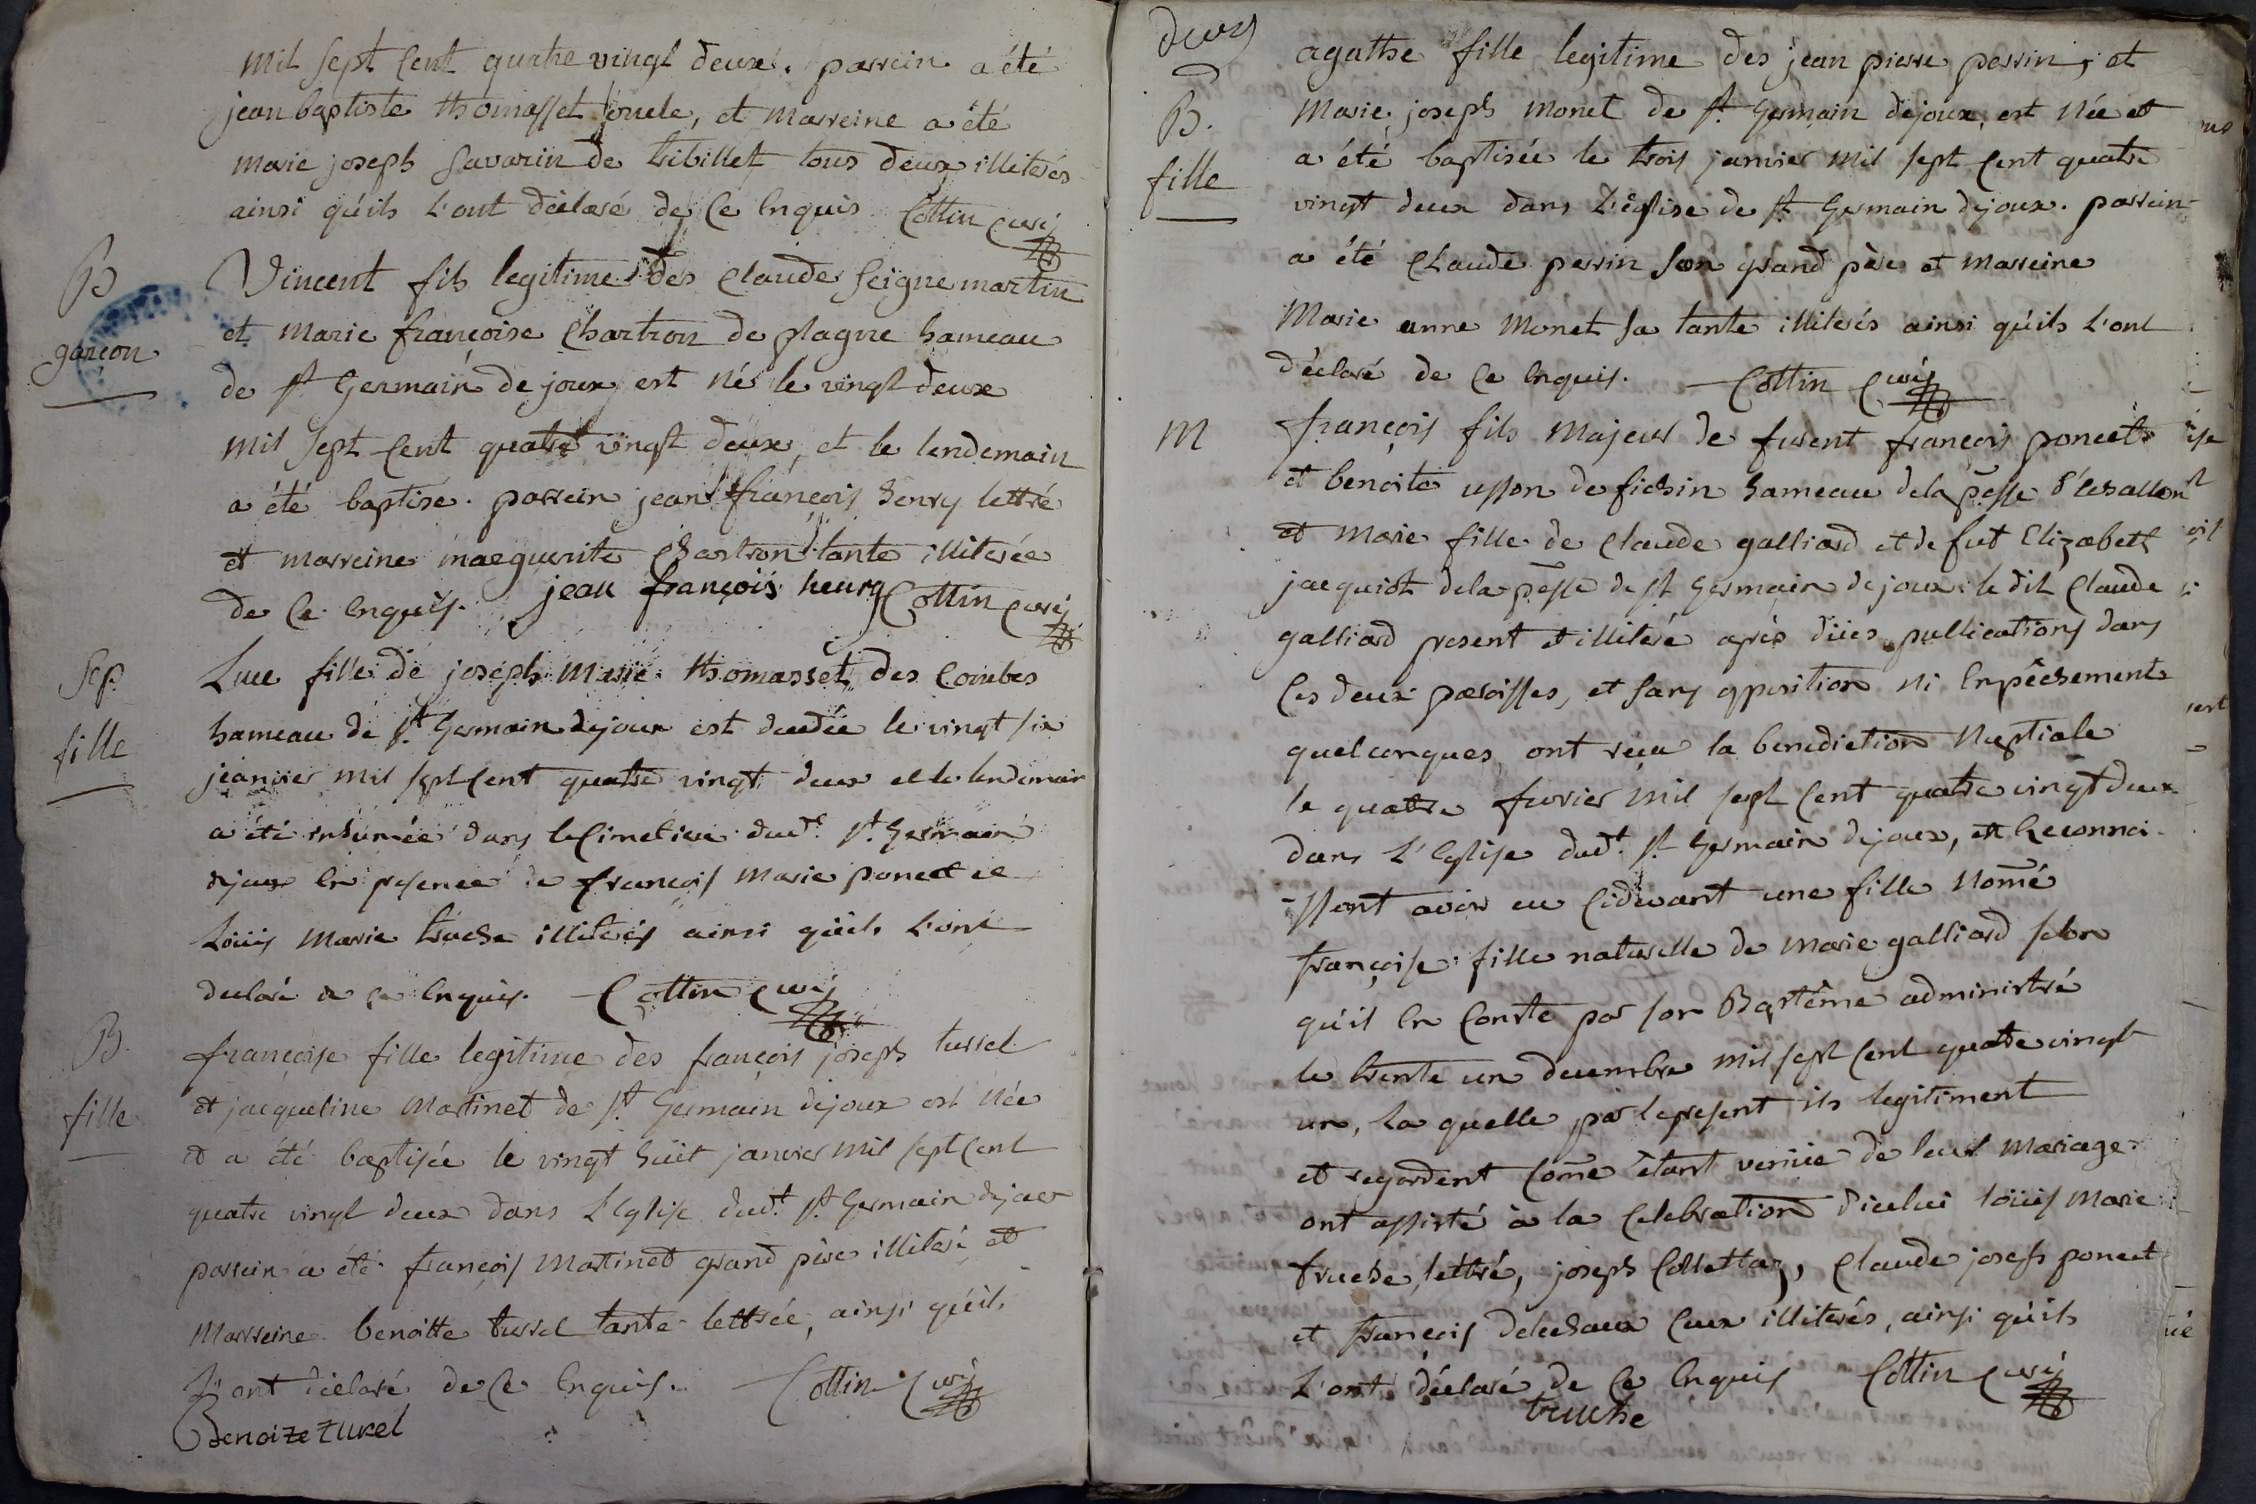 mil sept cent quatre vingt deux. parrein a été
jean baptiste thomasset oncle, et marreine a été
marie joseph savarin de tribillet tous deux illiterés
ainsi qu'ils l'ont déclaré de ce enquis Cottin curé
B
garçon
Vincent fils legitime des claude seignemartin
et marie françoise Chartron de plagne hameau
de st Germain de joux est né le vingt deux
mil sept cent quatre vingt deux, et le lendemain
a été baptisé. parrein jean françois henry lettré
et marreine marguerite Chartron tante illiterée
de ce enquis. jean françois henry Cottin curé
Sep
fille
Luce fille de joseph marie thomasset des Combes
hameau de st Germain dejoux est decedée le vingt six
janvier mil sept cent quatre vingt deux et le lendemain
a été inhumée dans le cimetiere dud.t st Germain
dejoux en presence de françois marie poncet et
Loüis marie truche illiterés ainsi qu'ils l'ont
declaré de ce enquis. Cottin curé
B.
fille
françoise fille legitime des françois joseph turrel
et jacqueline martinet de st Germain dejoux est née
et a été baptisée le vingt huit janvier mil sept cent
quatre vingt deux dans l'Eglise dud.t st Germain dejoux
parrein a été françois martinet grand père illiteré et
marreine benoitte turrel tante lettrée, ainsi qu'ils
l'ont déclaré de ce enquis. Cottin Curé
Benoize turel
deux
B.
fille
agathe fille legitime des jean pierre perrin, et
marie joseph monet de st Germain dejoux, est née et
a été baptisée le trois janvier mil sept cent quatre
vingt deux dans l'église de st Germain dejoux. parrein
a été Claude perrin son grand père et marreine
Marie anne monet sa tante illiterés ainsi qu'ils l'ont
déclaré de ce enquis. Cottin Curé
M
françois fils majeur de furent françois poncet
et benoite usson de fichin hameau dela p̄esse d'echallon
et marie fille de claude galliard et de fut Elizabeth
jacquiot dela p̄esse de st Germain dejoux: le dit Claude
galliard present et illiteré après düés publications dans
les deux paroisses, et sans opposition ni enpêchements
quelconques ont reçu la benediction nuptiale
le quatre fevrier mil sept cent quatre vingt deux
dans l'Eglise dud.t st Germain dejoux, et reconnoi-
-ssent avoir eu cidevant une fille nom̄é
françoise fille naturelle de marie galliard selon
qu'il en conste par son Baptême administré
le trente un decembre mil sept cent quatre vingt
un, la quelle par le present ils legitiment
et regardent com̄e étant venüe de leur mariage.
ont assisté à la celebration d'icelui loüis marie
truche, lettré, joseph Collettaz, Claude joseph poncet
et françois delechaux ceux illiterés, ainsi qu'ils
l'ont déclaré de ce enquis Cottin curé
truche